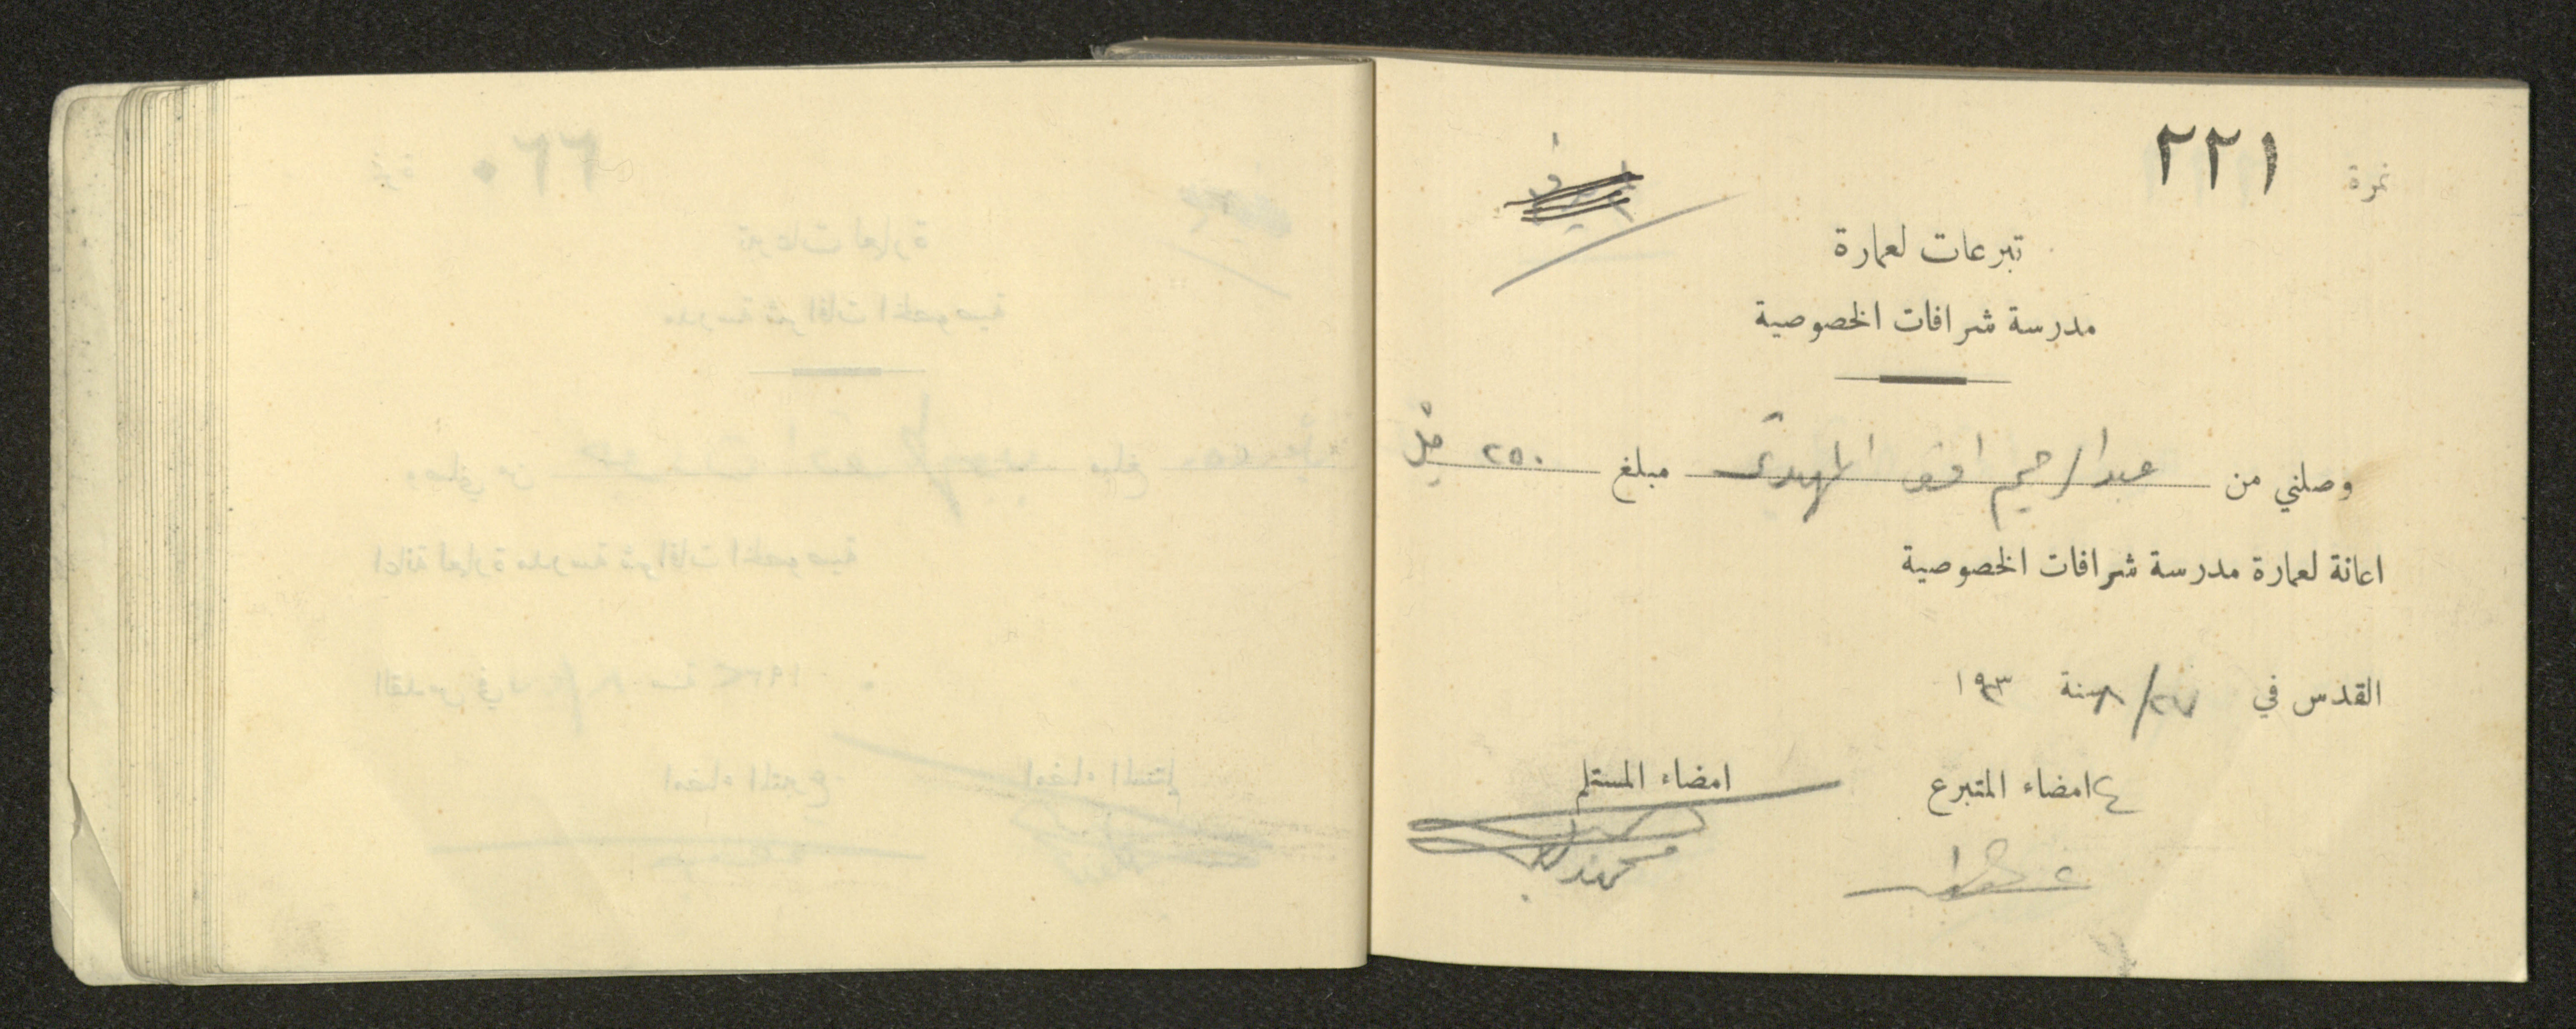 نمرة ٢٢١
تبرعات لعمارة
مدرسة شرافات الخصوصية
وصلني من عبد الرحيم افندي المهدي مبلغ ٢٥٠ مل
اعانة لعمارة مدرسة شرافات الخصوصية
القدس في ٢٧/٨ سنة ١٩٣
امضاء المتبرع امضاء المستلم